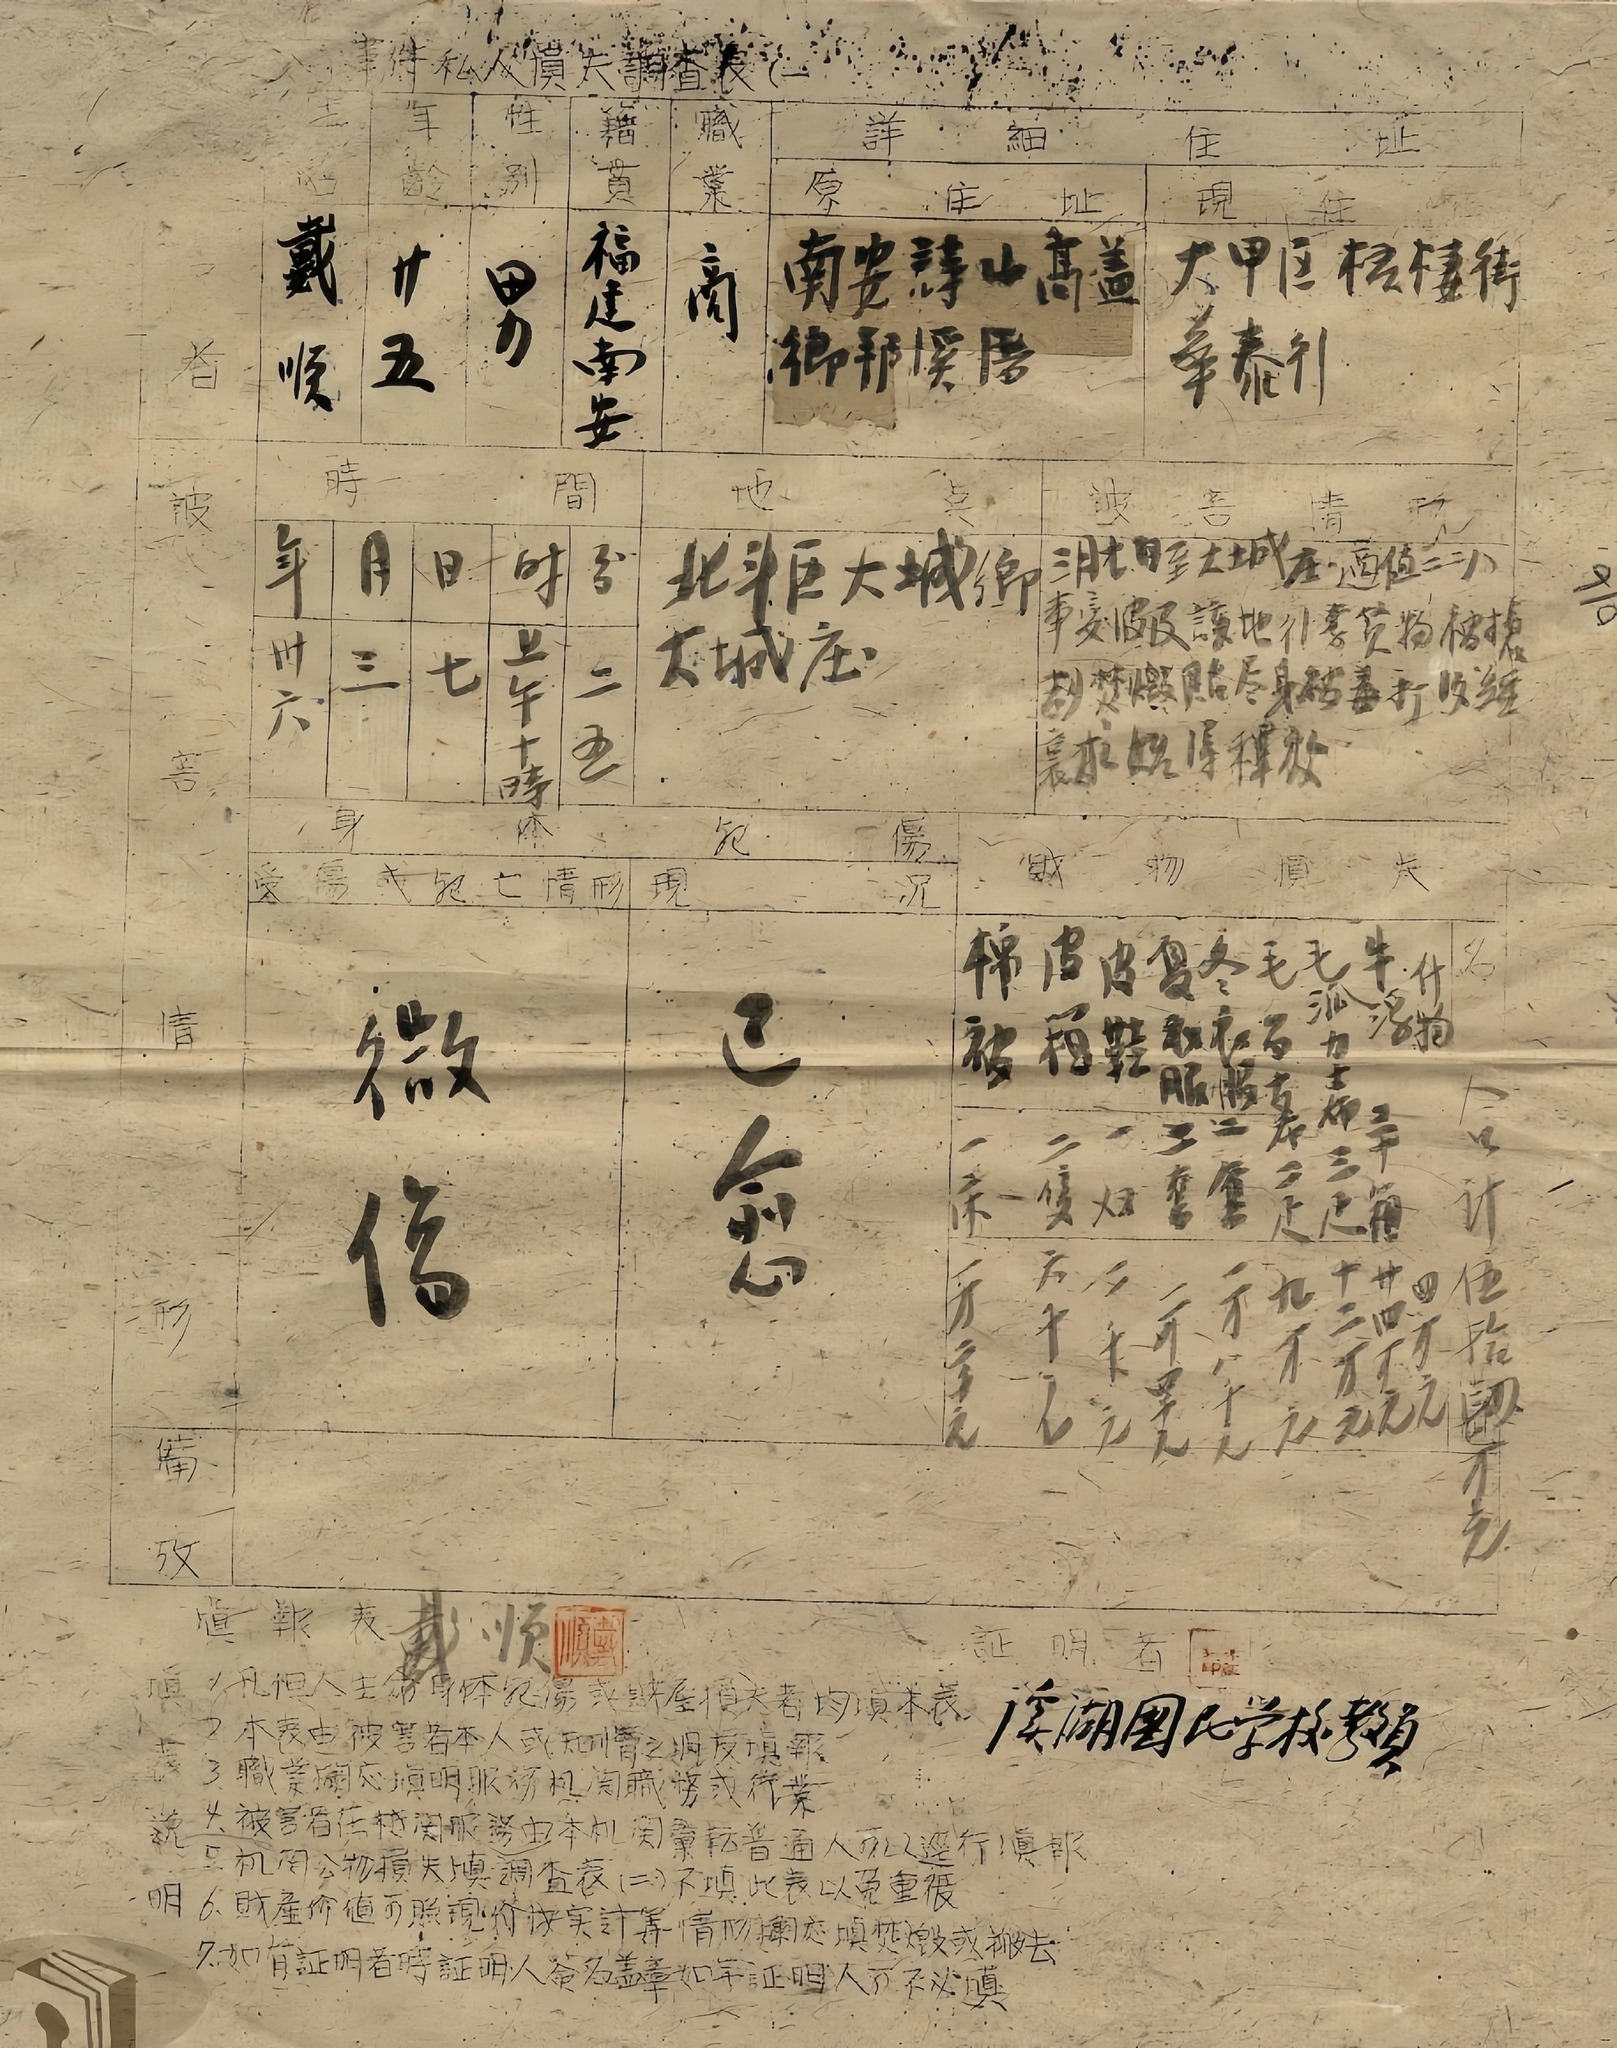 事件私人損失調查表(一
姓名
年齡
性別
籍貫
職業
詳細住址
原住址
現住
者
戴順
廿五
男
福建南安
商
南安詩山高蓋
鄉那溪厝
大甲区梧棲街
華泰行
被害情形
時間
地点
被害情形
年
月
日
时
分
卅六
三
七
上午十時
二五
北斗区大城鄉
大城庄
三月七日至大城庄適值二二八
事変波及該地行李貨物被搶
劫焚燬貽尽身被毒打後經
哀求始得釋放
身体死傷
財物損失
受傷或死亡情形
現況
微傷
已愈
名
棉被 一床 一万二千元
皮箱 二隻 六千元
皮鞋 一双 二千元
夏衣服 二套 一万四千元
冬衣服 二套 一万八千元
毛 二疋 九万元
毛 力士布 三疋 十二万元
牛 二十箱 廿四万元
什物 四万元
合计伍拾 万元
備攷
填報表 戴順
証明者
溪湖國民学校教員
填表説明
1. 凡但人生命身体死傷或財產損失者均填本表
2 本表由被害者本人或知情之朋友填報
3 職業欄応填明服務机関職務或行業
4. 被害者在機関服務由本机関彙転普通人可以逕行填報
5. 机関公物損失填調查表(二)不填此表以免重複
6. 財產价值可照現价決实計算情形欄応填焚燬或搬去
7. 如有証明者時証明人簽名蓋章如無証明人可不必填